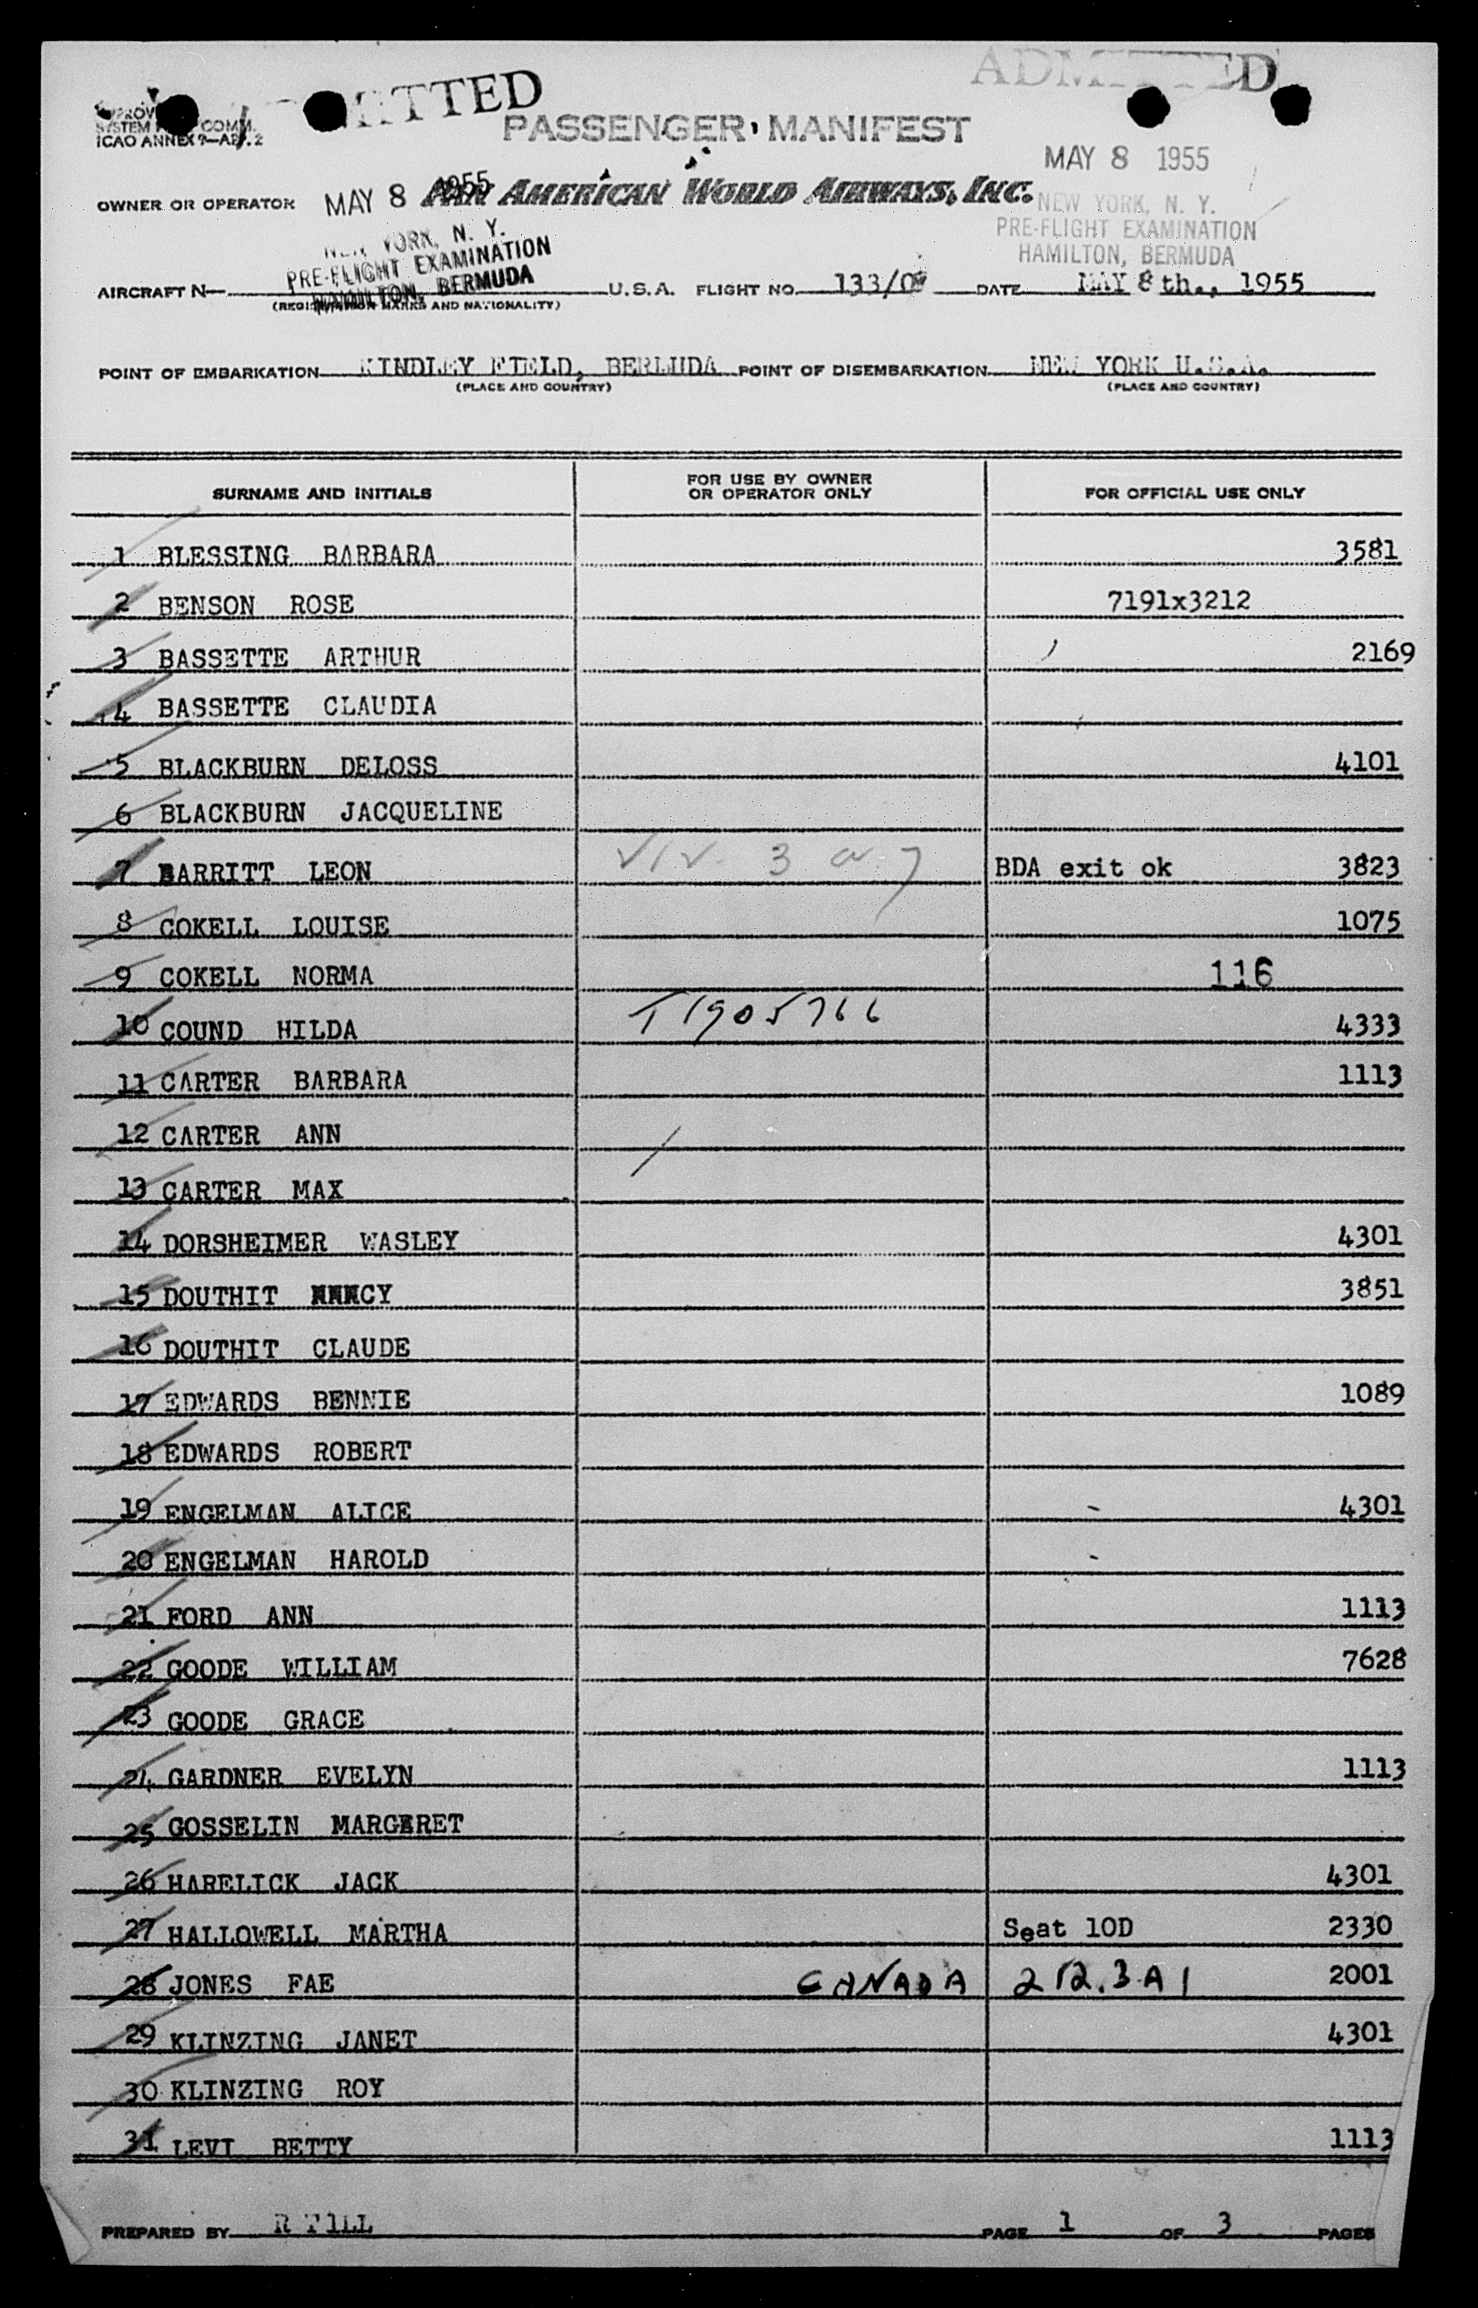 ADMITTED
ADMITTED
SYSTEM COMM.
ICAO ANNEX 9—AP.2
PASSENGER MANIFEST
MAY 8 1955
OWNER OR OPERATOR MAY 8 1955 PAN AMERICAN WORLD AIRWAYS, INC.
NEW YORK, N. Y.
PRE-FLIGHT EXAMINATION
HAMILTON, BERMUDA
NEW YORK, N. Y.
PRE-FLIGHT EXAMINATION
HAMILTON, BERMUDA
AIRCRAFT N— U.S.A. FLIGHT NO. 133/0 DATE MAY 8th., 1955
(REGISTRATION MARKS AND NATIONALITY)
POINT OF EMBARKATION KINDLEY FIELD, BERMUDA POINT OF DISEMBARKATION NEW YORK U.S.A.
(PLACE AND COUNTRY) (PLACE AND COUNTRY)
SURNAME AND INITIALS FOR USE BY OWNER OR OPERATOR ONLY FOR OFFICIAL USE ONLY
1 BLESSING BARBARA 3581
2 BENSON ROSE 7191x3212
3 BASSETTE ARTHUR 2169
4 BASSETTE CLAUDIA
5 BLACKBURN DELOSS 4101
6 BLACKBURN JACQUELINE
7 BARRITT LEON BDA exit ok 3823
8 COKELL LOUISE 1075
9 COKELL NORMA 116
10 COUND HILDA T1905766 4333
11 CARTER BARBARA 1113
12 CARTER ANN
13 CARTER MAX
14 DORSHEIMER WASLEY 4301
15 DOUTHIT NANCY 3851
16 DOUTHIT CLAUDE
17 EDWARDS BENNIE 1089
18 EDWARDS ROBERT
19 ENGELMAN ALICE 4301
20 ENGELMAN HAROLD
21 FORD ANN 1113
22 GOODE WILLIAM 7628
23 GOODE GRACE
24 GARDNER EVELYN 1113
25 GOSSELIN MARGARET
26 HARELICK JACK 4301
27 HALLOWELL MARTHA Seat 10D 2330
28 JONES FAE CANADA 212.3A1 2001
29 KLINZING JANET 4301
30 KLINZING ROY
31 LEVI BETTY 1113
PREPARED BY R TILL PAGE 1 OF 3 PAGES